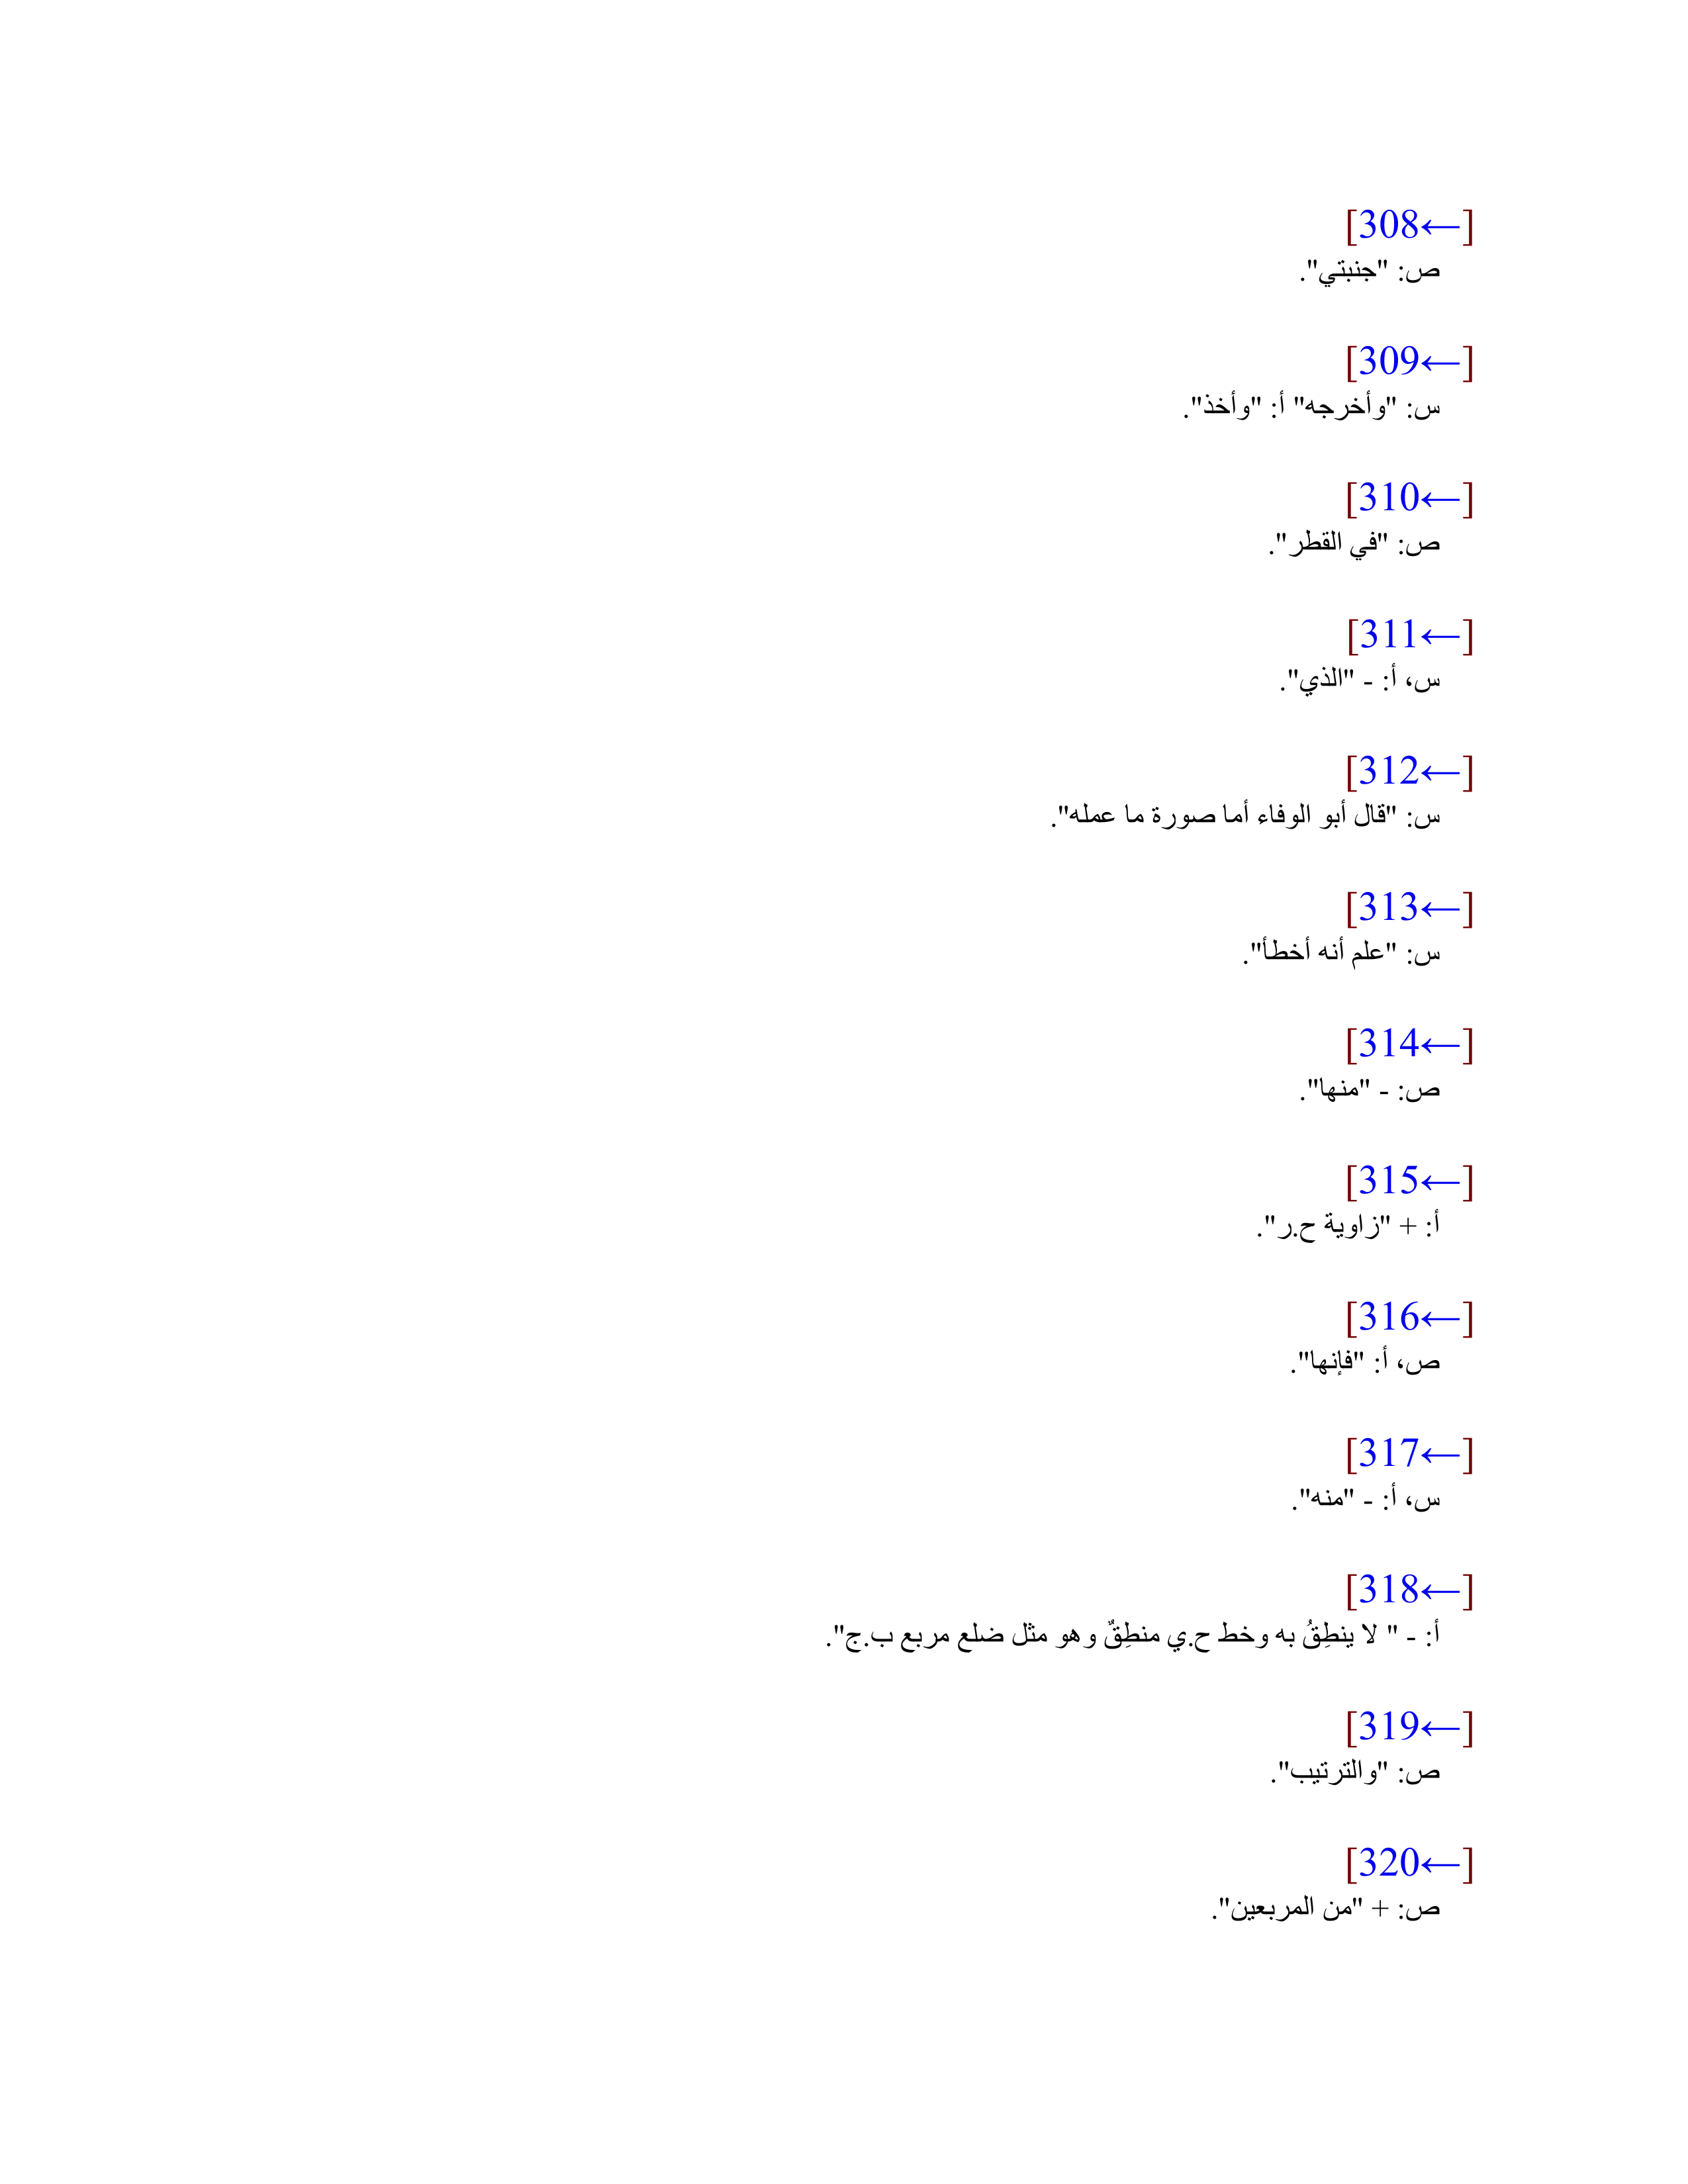 [←308]
ص: "جنبتي".
[←309]
س: "وأخرجه" أ: "وأخذ".
[←310]
ص: "في القطر".
[←311]
س، أ: - "الذي".
[←312]
س: "قال أبو الوفاء أما صورة ما عمله".
[←313]
س: "علم أنه أخطأ".
[←314]
ص: - "منها".
[←315]
أ: + "زاوية ح.ر".
[←316]
ص، أ: "فإنها".
[←317]
س، أ: - "منه".
[←318]
أ: - " لا ينطِقُ به وخط ح.ي منطِقٌ وهو مثل ضلع مربع ب.ج".
[←319]
ص: "والترتيب".
[←320]
ص: + "من المربعين".